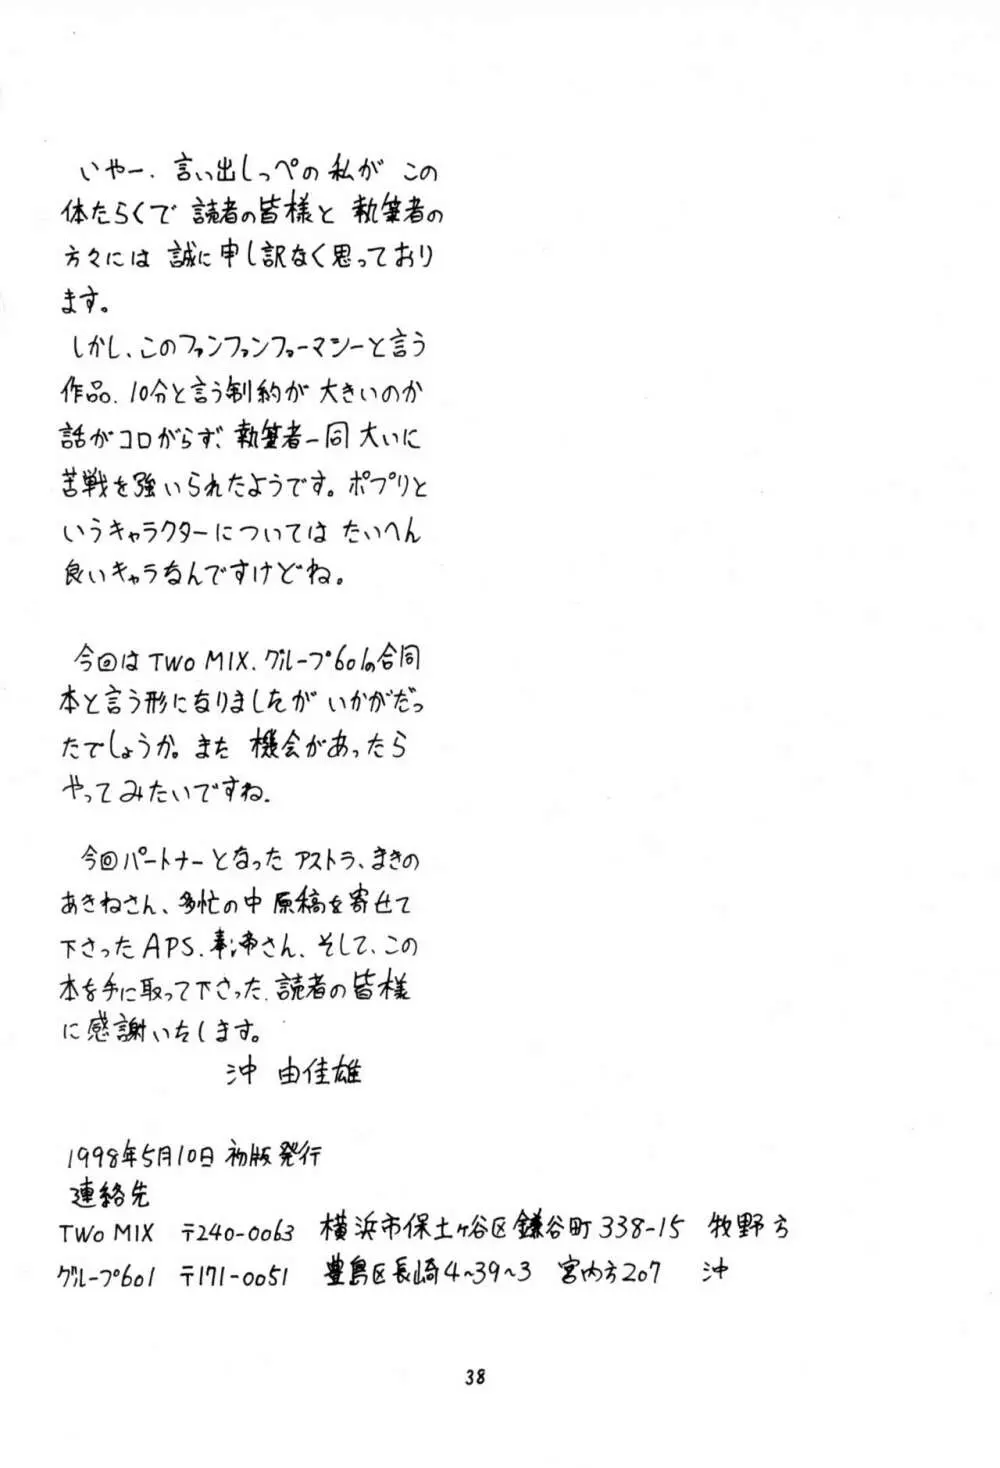 いやー、言い出しっぺの私が この
体たらくで 読者の皆様と 執筆者の
方々には 誠に申し訳なく思っており
ます。
しかし、このファンファンファーマシーと言う
作品、10分と言う制約が 大きいのか
話がコロがらず、執筆者一同 大いに
苦戦を強いられたようです。ポプリと
いうキャラクターについては たいへん
良いキャラなんですけどね。
今回は TWO MIX、グループ601の合同
本と言う形になりましたが いかがだっ
たでしょうか。また 機会があったら
やってみたいですね。
今回パートナーとなった アストラ、まきの
あきねさん、多忙の中 原稿を寄せて
下さった APS、さん、そして、この
本を手に取って下さった、読者の皆様
に感謝いたします。
沖 由佳雄
1998年5月10日 初版発行
連絡先
TWO MIX 〒240-0063 横浜市保土ヶ谷区鎌谷町338-15 牧野方
グループ601 〒171-0051 豊島区長崎4~39~3 宮内方207 沖
38